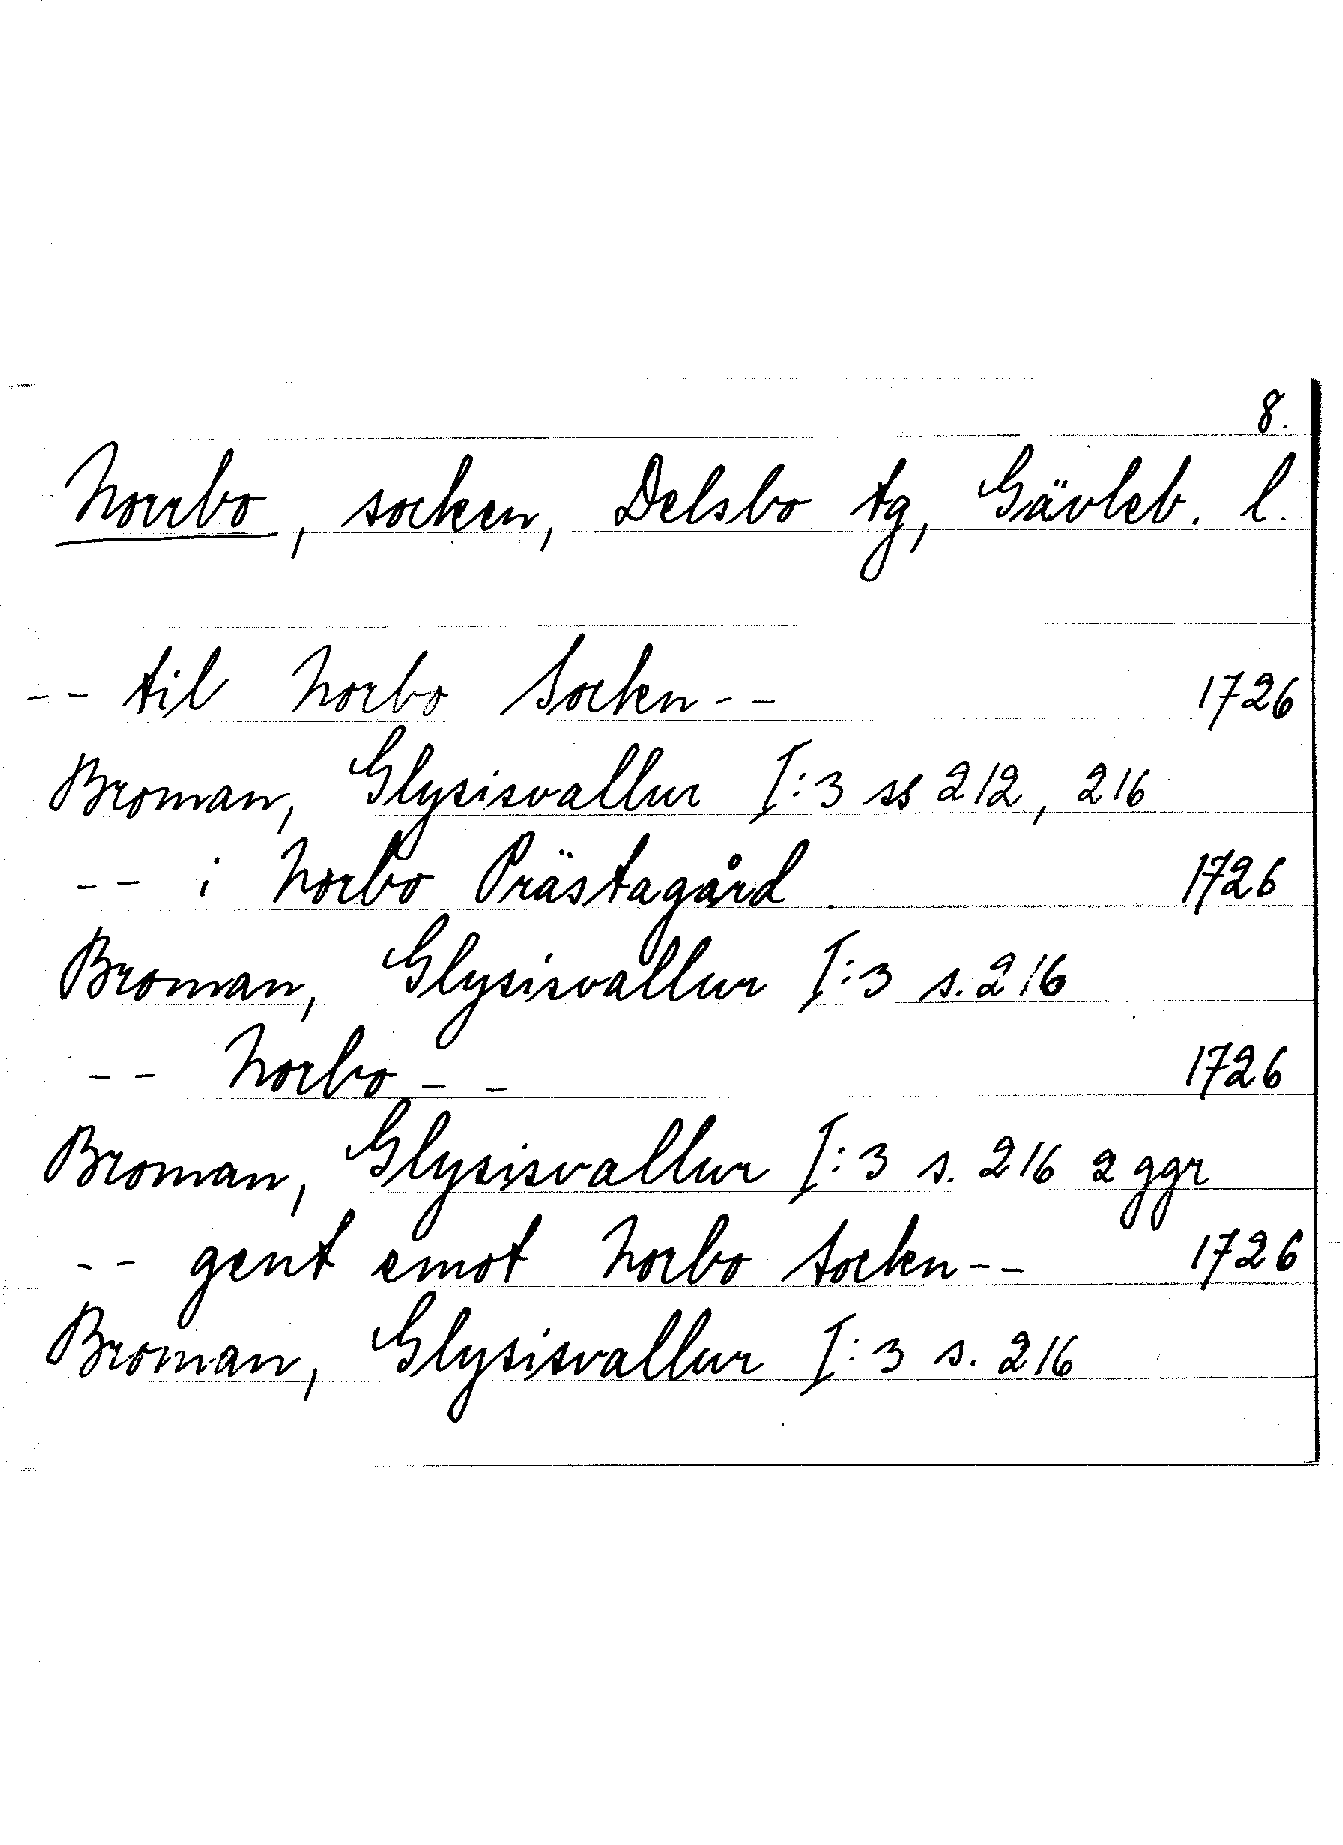 8.
Norrbo, socken, Delsbo tg, Gävleb. l.
-- til Norbo Socken -- 1726
Broman, Glysisvallur I:3 ss 212, 216
-- i Norbo Prästagård 1726
Broman, Glysisvallur I:3 s. 216
-- Norbo -- 1726
Broman, Glysisvallur I:3 s. 216 2 ggr
-- gent emot Norbo socken -- 1726
Broman, Glysisvallur I:3 s. 216